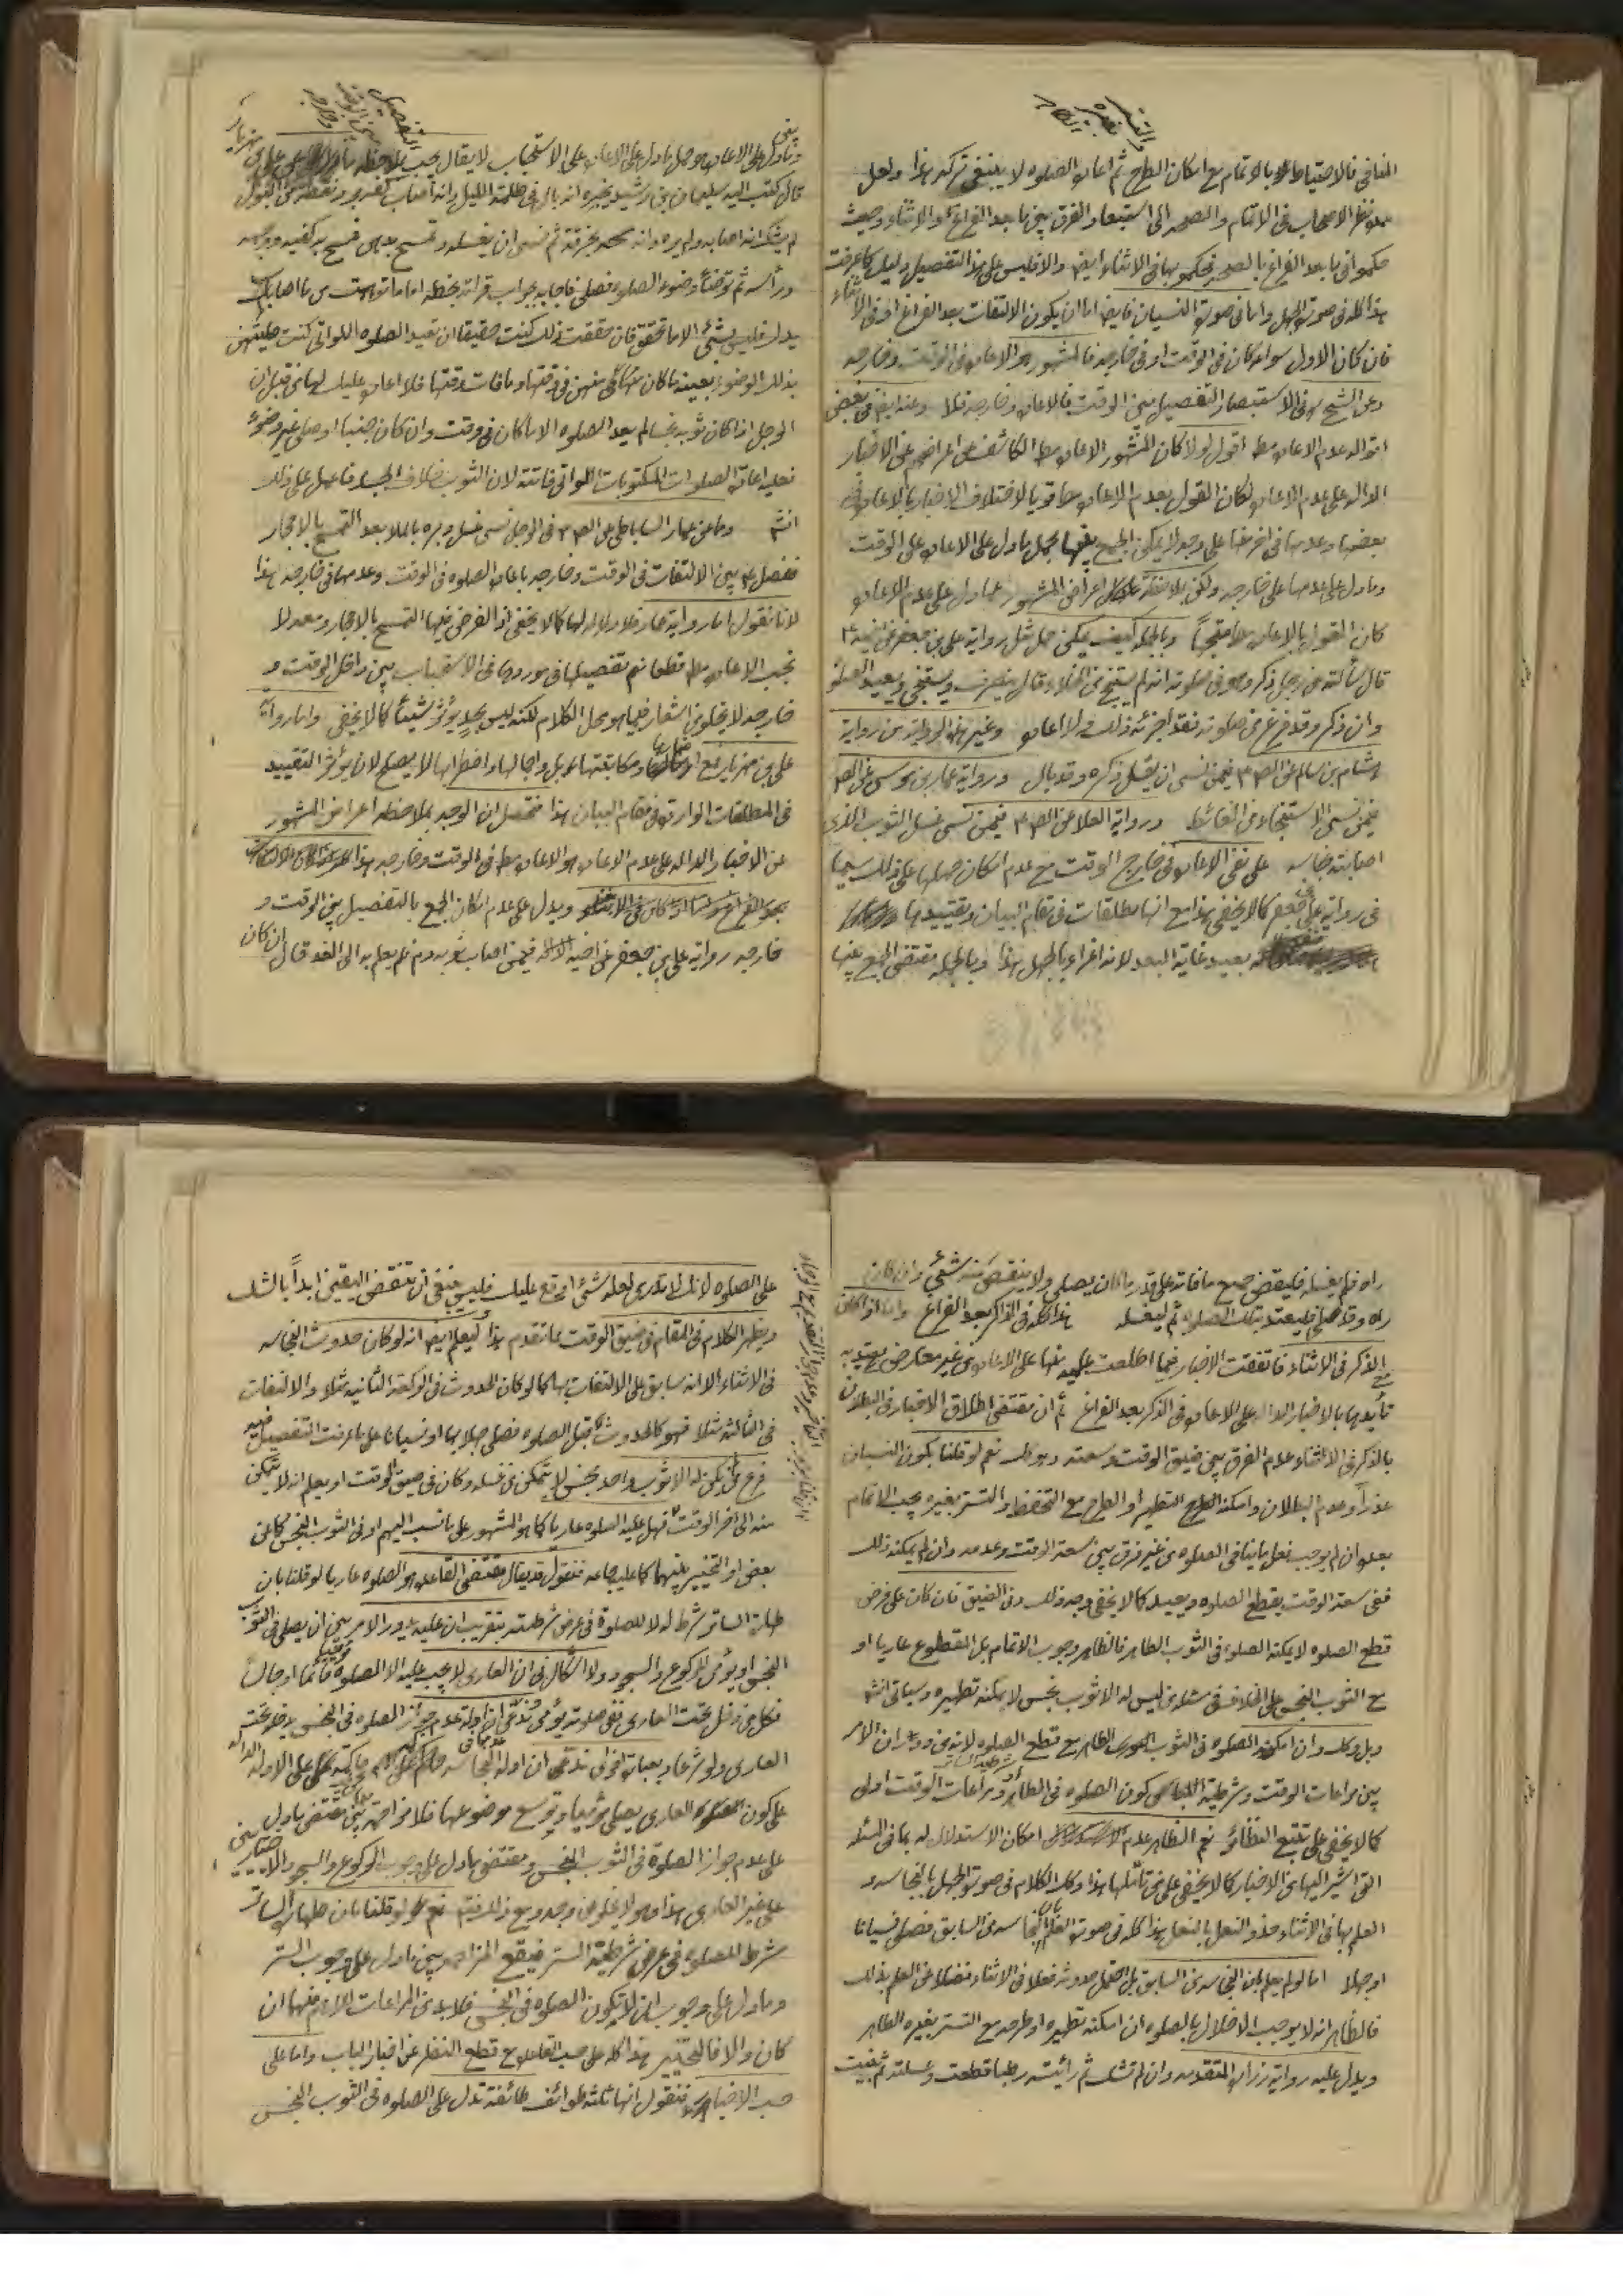 المنافى فالاحتياط بالاتمام مع امكان الطرح ثم اعادة الصلوة لا ينبغى تركه هذا ولعل
نظر الاصحاب فى الاتمام والصحة الى استبعاد الفرق بين ما بعد الفراغ والاثناء وحيث
حكموا فى ما بعد الفراغ بالصحة فحكموا بها فى الاثناء ايضا والا فليس على هذا التفصيل دليل كما عرفت
هذا كله فى صورة الجهل واما فى صورة النسيان فايضا اما ان يكون الالتفات بعد الفراغ او فى الاثناء
فان كان الاول سواء كان فى الوقت او فى خارجه فالمشهور هو الاعادة فى الوقت وخارجه
وعن الشيخ فى الاستبصار التفصيل بين الوقت فالاعادة وخارجه فلا وعنه ايضا فى بعض
اقواله عدم الاعادة مط اقول لولا كان المشهور الاعادة مط الكاشف عن اعراضهم عن الاخبار
الدالة على عدم الاعادة لكان القول بعدم الاعادة قويا لاختلاف الاخبار بالاعادة فى
بعضها وعدمها فى اخر منها على وجه لا يمكن الجمع بينها بحمل ما دل على الاعادة على الوقت
وما دل على عدمها على خارجه ولكن بملاحظة اعراض المشهور عما دل على عدم الاعادة
كان القول بالاعادة متجها وبالجملة كيف يمكن حمل مثل رواية على بن جعفر عن اخيه ع
قال سألته عن رجل ذكر وهو فى صلوته انه لم يستنج من الخلاء قال ينصرف ويستنجى ويعيد الصلوة
وان ذكر وقد فرغ من صلوته فقد اجزئه ذلك ولا اعادة وغير هذه الرواية من رواية
هشام بن سالم عن الص ع فيمن نسى ان يغسل ذكره وقد بال ورواية عمار بن موسى عن الص ع
فيمن نسى الاستنجاء من الغائط ورواية العلا عن الص ع فيمن نسى غسل الثوب الذى
اصابته نجاسة على نفى الاعادة فى خارج الوقت مع عدم امكان حملها على ذلك سيما
فى رواية على بن جعفر كما لا يخفى هذا مع انها مطلقات فى مقام البيان وتقييدها
بعيد غاية البعد لانه اغراء بالجهل هذا وبالجملة مقتضى الجمع بينها
وما دل على الاعادة هو حمل ما دل على الاعادة على الاستحباب لا يقال يجب بملاحظة
قال كتب اليه سليمان بن رشيد يخبره انه بال فى ظلمة الليل وانه اصاب كفه برد نقطة من البول
لم يشك انه اصابه ولم يره وانه مسحه بخرقة ثم نسى ان يغسله وتمسح بدهن فمسح به كفيه ووجهه
ورأسه ثم توضأ وضوء الصلوة فصلى فاجابه بجواب قرائة بخطه اما ما توهمت مما اصاب
يدك فليس بشئ الا ما تحقق فان حققت ذلك كنت حقيقا ان تعيد الصلوة اللواتى كنت صليتهن
بذلك الوضوء بعينه ما كان منهن فى وقتها وما فات وقتها فلا اعادة عليك لها من قبل ان
الرجل اذا كان ثوبه نجسا لم يعد الصلوة الا ما كان فى وقت وان كان جنبا او صلى غير وضوء
فعليه اعادة الصلوات المكتوبات اللواتى فاتته لان الثوب خلاف الجسد فاعمل على ذلك
انشه وما عن عمار الساباطى عن الص ع فى الرجل نسى غسل دبره بالماء بعد التمسح بالاحجار
ففصل ع بين الالتفات فى الوقت وخارجه باعادة الصلوة فى الوقت وعدمها فى خارجه هذا
لانا نقول اما رواية عمار فلا دلالة لها كما لا يخفى اذ الفرض فيها التمسح بالاحجار ومعه لا
تجب الاعادة مط قطعا نعم تفصيلها فى موردها فى الاستحباب بين داخل الوقت و
خارجه لا يخلو من اشعار فيما هو محل الكلام لكنه ليس بحد يؤثر شيئا كما لا يخفى واما رواية
على بن مهزيار فمع ومكاتبتها بل واجمالها واضطرابها لا يصلح لان يؤثر التقييد
فى المطلقات الواردة فى مقام البيان هذا فتحصل ان الوجه بملاحظة اعراض المشهور
عن الاخبار الدالة على عدم الاعادة هو الاعادة مط فى الوقت وخارجه هذا
ويدل على عدم امكان الجمع بالتفصيل بين الوقت و
خارجه رواية على بن جعفر عن اخيه فيمن اصاب ثوبه دم فلم يعلم به الى الغد قال ان كان
راه فلم يغسله فليقض جميع ما فاته على قدر ما كان يصلى ولا ينقص منه شئ وان كان
راه وقد صلى فليعتد بتلك الصلوة ثم ليغسله هذا كله فى الذاكر بعد الفراغ واما اذا كان
الذكر فى الاثناء فاتفقت الاخبار فيما اطلعت عليه منها على الاعادة من غير معارض يعتد به
تأيدها بالاخبار الدالة على الاعادة فى الذكر بعد الفراغ ثم ان مقتضى اطلاق الاخبار فى البطلان
بالذكر فى الاثناء عدم الفرق بين ضيق الوقت وسعته وهو كك نعم لو قلنا بكون النسيان
عذرا وعدم البطلان وامكنه التطهير او الطرح مع التحفظ والتستر بغيره يجب الاتمام
بعده ان لم يوجب فعل ما ينافى الصلوة من غير فرق بين سعة الوقت وعدمه وان لم يمكنه ذلك
ففى سعة الوقت يقطع الصلوة ويعيد كما لا يخفى وجه ذلك وفى الضيق فان كان على فرض
قطع الصلوة لا يمكنه الصلوة فى الثوب الطاهر فالظاهر وجوب الاتمام بل المقطوع عاريا او
مع الثوب النجس على الخلاف فى مسئلة من ليس له الا ثوب نجس لا يمكنه تطهيره وسياتى انشه
وان امكنه الصلوة فى الثوب الطاهر مع قطع الصلوة ودوران الامر
بين مراعات الوقت وشرطية كون الصلوة فى الطاهر ومراعات الوقت اولى
كما لا يخفى على تتبع النظائر نعم الظاهر عدم امكان الاستدلال له بما فى المسئلة
التى اشير اليها من الاخبار كما لا يخفى على من تأملها هذا وكك الكلام فى صورة الجهل بالنجاسة و
العلم بها فى الاثناء حذو النعل بالنعل هذا كله فى صورة العلم بالنجاسة من السابق فصلى نسيانا
او جهلا اما لو لم يعلم بان النجاسة من السابق بل احتمل حدوثه فعلا فى الاثناء فضلا عن العلم بذلك
فالظاهر انه لا يوجب الاخلال بالصلوة ان امكنه تطهيره او طرحه مع التستر بغيره الطاهر
ويدل عليه رواية زرارة المتقدمة وان لم تشك ثم رأيته رطبا قطعت وغسلته ثم بنيت
على الصلوة لانك لا تدرى لعله شئ اوقع عليك فليس ينبغى ان تنقض اليقين ابدا بالشك
ويظهر الكلام فى المقام فى ضيق الوقت بما تقدم هذا وليعلم ايضا انه لو كان حدوث النجاسة
فى الاثناء الا انه سابق على الالتفات بها كما لو كان الحدوث فى الركعة الثانية مثلا والالتفات
فى الثالثة مثلا فهو كالحدوث قبل الصلوة فصلى جهلا بها او نسيانا على ما عرفت التفصيل فيه
فرع لو لم يكن له الا ثوب واحد نجس لا يتمكن من غسله وكان فى ضيق الوقت او يعلم انه لا يتمكن
منه الى اخر الوقت فهل عليه الصلوة عاريا كما هو المشهور على ما نسب اليهم او فى الثوب النجس كما عن
بعض او التخيير بينهما كما عليه جماعة فنقول قد يقال مقتضى القاعدة هو الصلوة عاريا لو قلنا بان
طهارة الساتر شرط له لا للصلوة فى عرض شرطيته بتقريب ان عليه يدور الامر بين ان يصلى فى الثوب
النجس او يؤمى للركوع والسجود ولا اشكال فى ان العارى لا يجب عليه الا الصلوة قائما او جالسا
فكل من دخل تحت العارى ففى صلوته يؤمى ادلة عدم جواز الصلوة فى النجس يدخله تحت
العارى ولو شرعا وبعبارة اخرى ندعى ان ادلة النجاسة حاكمة على الادلة الدالة
على كون العارى يصلى مؤميا وتوسع موضوعها فلا مزاحمة بين مقتضى ما دل
على عدم جواز الصلوة فى الثوب النجس ومقتضى ما دل على وجوب الركوع والسجود الاختياريين
على غير العارى هذا وهو لا يخلو من وجه ومع ذلك فتم نعم لو قلنا بان طهارة الساتر
شرط للصلوة فى عرض شرطية الستر فيقع المزاحمة بين ما دل على وجوب الستر
وما دل على وجوب ان لا يكون الصلوة فى النجس فلا بد من المراعات الاهم منهما ان
كان والا فالتخيير هذا كله على حسب القاعدة مع قطع النظر عن اخبار الباب واما على
حسب الاخبار فنقول انها ثلثة طوائف طائفة تدل على الصلوة فى الثوب النجس